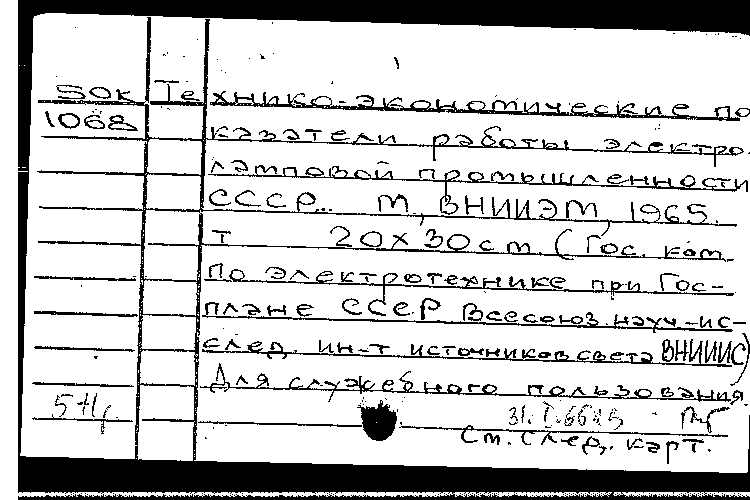 50к Технико-экономические по
1068 казатели работы электро-
ламповой промышленности
СССР... М, ВНИИЭМ, 1965.
т 20х30см. (Гос. ком.
по электротехнике при Гос-
плане СССР Всесоюз. науч.-ис-
след. ин-т источников света ВНИИИС)
Для служебного пользования.
См. след. карт.